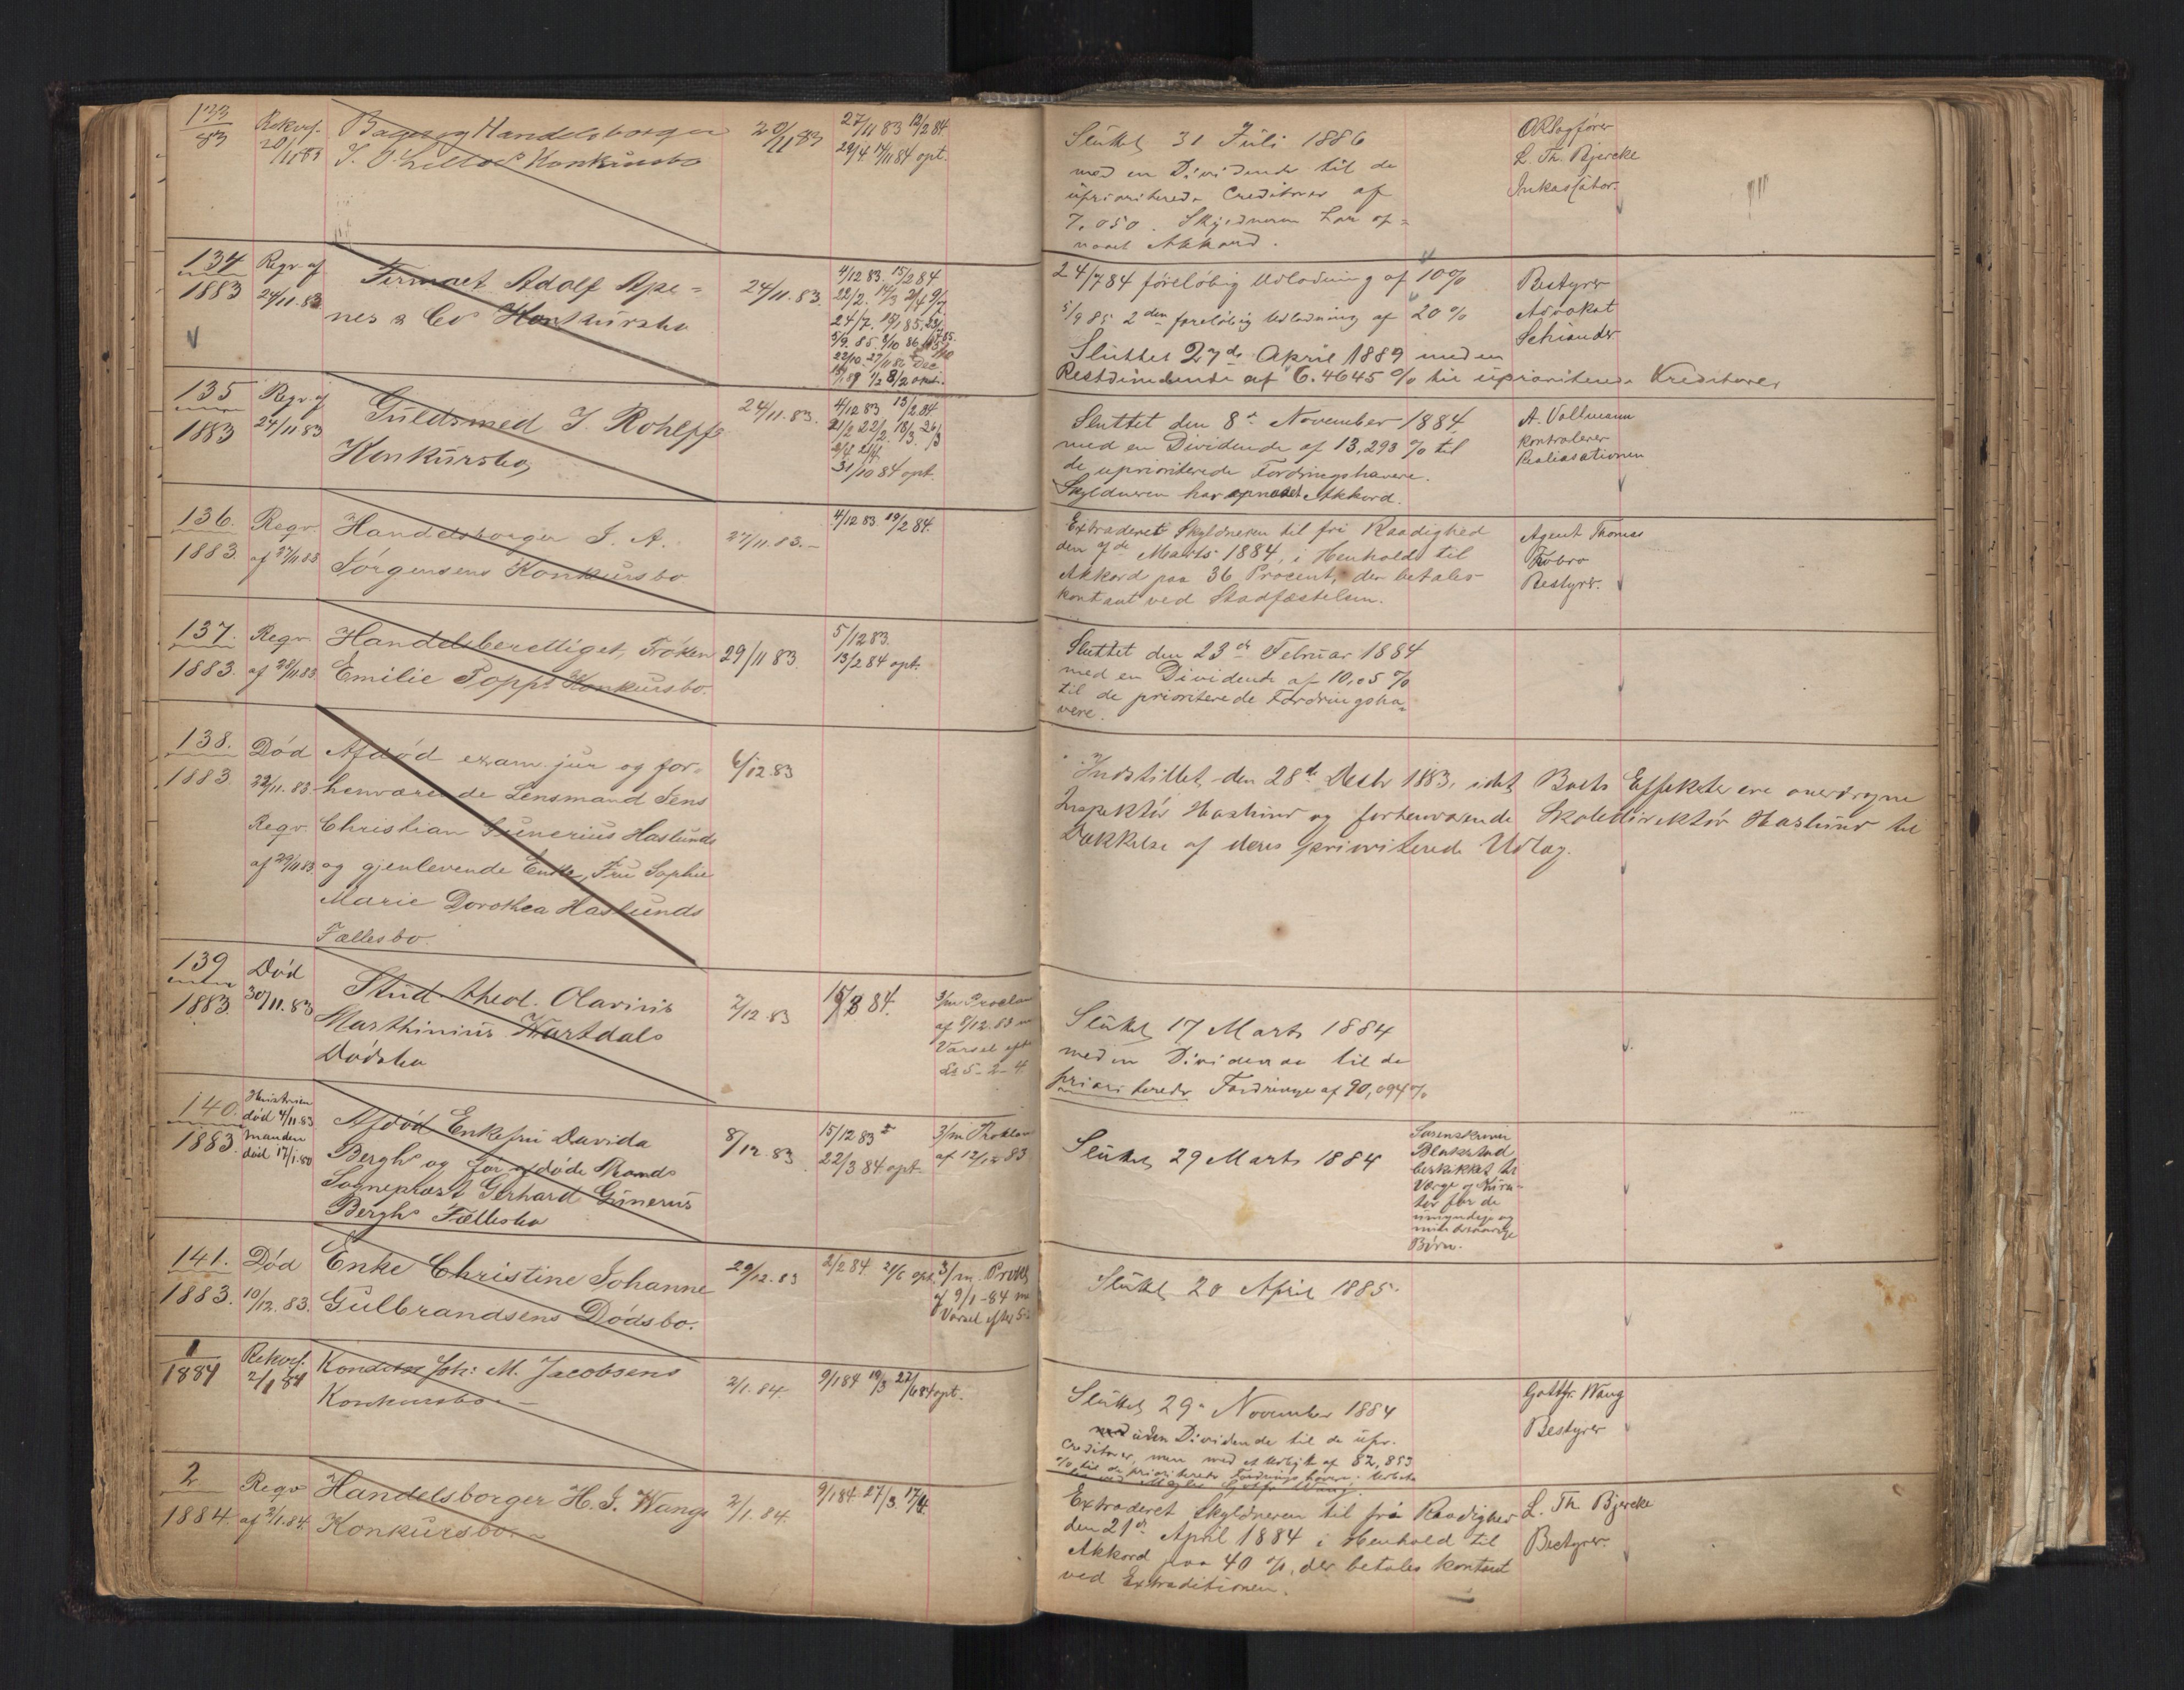 133
83
Rekvis.
20/11 83
Bager og Handelsborger
J. O. Konkursbo
20/11 83
27/11 83 12/2 84
29/4 14/11 84 opt.
Sluttet 31 Juli 1886
med en Dividende til de
uprioriterede Creditorer af
7,050. Skyldneren har op=
naaet Akkord.
ORsagfører
L. Th. Bjercke
Inkassator.
134
1883
Reqv. af
24/11.83
Firmaet Adolf Ape=
nes & Co Konkursbo
24/11.83.
4/12 83 15/2 84
22/2.
24/7.
24/7 84 foreløbig Udlodning af 10%
5/9 85 2den foreløbig Udlodning af 20 %
Sluttet 27de April 1889 med en
Restdividende af 6.4645 % til uprioriterede Kreditorer
Bestyrer
Advokat
Schiander
135
1883
Reqv. af
24/11 83
Guldsmed J. Rohlpfs
Konkursbo
24/11.83.
4/12 83 13/2 84
21/2 22/2. 18/3. 26/3
31/10 84 opt.
Sluttet den 8de November 1884
med en Dividende af 13,293 % til
de uprioriterede Fordringshavere.
Skyldneren har opnaaet Akkord.
A. Vollmann
kontrolerer
Realisationen
136.
1883.
Reqv.
af 27/11 83
Handelsborger J. A.
Jörgensens Konkursbo
27/11.83.–
4/12 83. 19/2 84.
Extraderet Skyldneren til fri Raadighed
den Marts 1884, i Henhold til
Akkord paa 36 Procent, der betales
kontant ved Stadfæstelsen.
Agent Thomas
Fobro
Bestyrer.
137.
1883.
Reqv.
af 28/11 83
Handelsberettiget, Fröken
Emilie Popps Konkursbo.
29/11 83.
5/12 83.
13/2 84 opt.
Sluttet den 23de Februar 1884
med en Dividende af 10,05 %
til de prioriterede Fordringsha=
vere.
138.
1883.
Död
22/11.83.
Reqv.
af 29/11 83
Afdöd exam. jur og for=
henværende Lensmand Jens
Christian Gunerius Haslunds
og gjenlevende Enke, Fru Sophie
Marie Dorothea Haslunds
Fællesbo.
6/12.83
Indstillet den 28de Decbr 1883, idet Boets Effekter ere overdragne
Inspektör Haslund og forhenværende Skoledirektör Haslund til
Dækkelse af deres prioriterede Udlæg.
139
1883.
Död
30/11.83
Stud. theol. Olavius
Marthinius Hartdals
Dödsbo
7/12.83
15/3 84.
3/m Proclam
af 8/12.83 m
Varsel eft
L. 5-2-4.
Sluttet 17 Marts 1884
med en Dividende til de
prioriterede Fordringer af 90,094 %
140.
1883.
Hustruen
död 4/11.83
Manden
död 17/1.80
Afdöd Enkefru Davida
Berghs og for afdöde Mands
Sogneprest Gerhard Gunerius
Berghs Fællesbo
8/12.83.
15/12 83
22/3 84 opt.
3/m Proklam
af 12/12 83
Sluttet 29 Marts 1884
Sorenskriver
Blakstad
beskikket til
Værge og Kura-
tor for de
umyndige og
mindreaarige
Börn.
141.
1883.
Död
10/12.83.
Enke Christine Johanne
Gulbrandsens Dödsbo.
29/12.83
2/2 84. 21/6 opt.
3/m. Prokl.
af 9/1-84 m
Varsel efter 5-
Sluttet 20 April 1885.
1
1884
Rekvis.
2/1 84
Konditor Joh: M. Jacobsens
Konkursbo. –
2/1.84.
9/1 84 19/3 27/6 84 opt.
Sluttet 29de November 1884
med uden Dividende til de upr.
Creditorer, men med et Udbytte af 82,853
% til de prioriterede Fordringshavere.
Gottfr. Wang
Bestyrer
2
1884
Reqv
af 2/1.84.
Handelsborger H. J. Wangs
Konkursbo. –
2/1.84.
9/1 84. 27/3 17/4.
Extraderet Skyldneren til fri Raadighed
den 21de April 1884 i Henhold til
Akkord paa 40 %, der betales kontant
ved Extraditionen.
L. Th. Bjercke
Bestyrer.